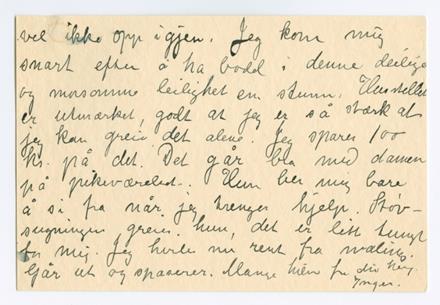 vel ikke opp igjen. Jeg kom mig
snart efter å ha bodd i denne deilige
og morsomme leilighet en stund. Husstellet
er utmerket, godt at jeg er så stærk at
jeg kan greie det alene. Jeg sparer 100
kr. på det. Det går bra med damen
på pikeværelset. Hun ber mig bare
å si fra når jeg trenger hjelp. Støv-
sugningen greier hun, det er litt tungt
for mig. Jeg hvile nu rent fra
Går ut og spaserer. Mange hilsen fra din heng.
Inger.